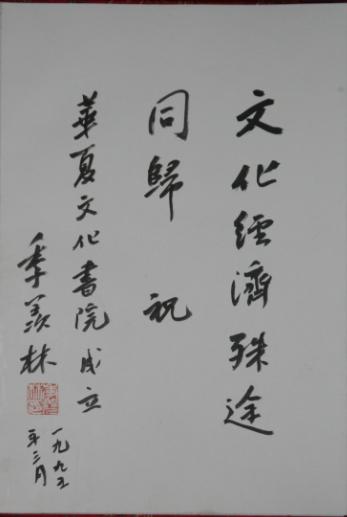 文化經濟殊途
同歸 祝
華夏文化書院成立
季羨林
一九九五
年三月